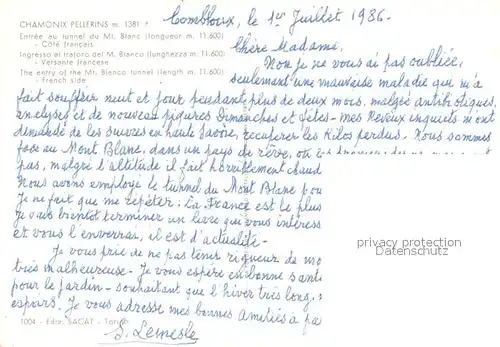 CHAMONIX PELLERINS m. 1381
Entrée au tunnel du Mt. Blanc (longueur m. 11.600)
- Côté français
Ingresso al traforo del M. Bianco (lunghezza m. 11.600)
- Versante francese
The entry of the Mt. Blanco tunnel (length m. 11.600)
- French side
Combloux, le 1er Juillet 1986.
Chère Madame,
Non je ne vous ai pas oubliée,
seulement une mauvaise maladie qui m'a
fait souffrir nuit et jour pendant plus de deux mois, malgré antibiotiques,
analyses et de nouveau piqures Dimanches et fêtes - mes Neveux inquiets m'ont
demandé de les suivre en haute Savoie, récupérer les Kilos perdus. Nous sommes
face au Mont Blanc, dans un pays de rêve, où
pas, malgré l'altitude il fait horriblement chaud
Nous avons employé le tunnel du Mont Blanc pou
Je ne fait que me répéter: La France est le plus
Je vais bientôt terminer un livre qui vous intéress
et vous l'enverrai, il est d'actualité -
Je vous prie de ne pas tenir rigueur de mo
très malheureuse - Je vous espère en bonne sant
pour le jardin - souhaitant que l'hiver très long,
espoirs. Je vous adresse mes bonnes amitiés a pa
S. Lemesle
1004 - Ediz. SACAT - Torino
privacy protection
Datenschutz